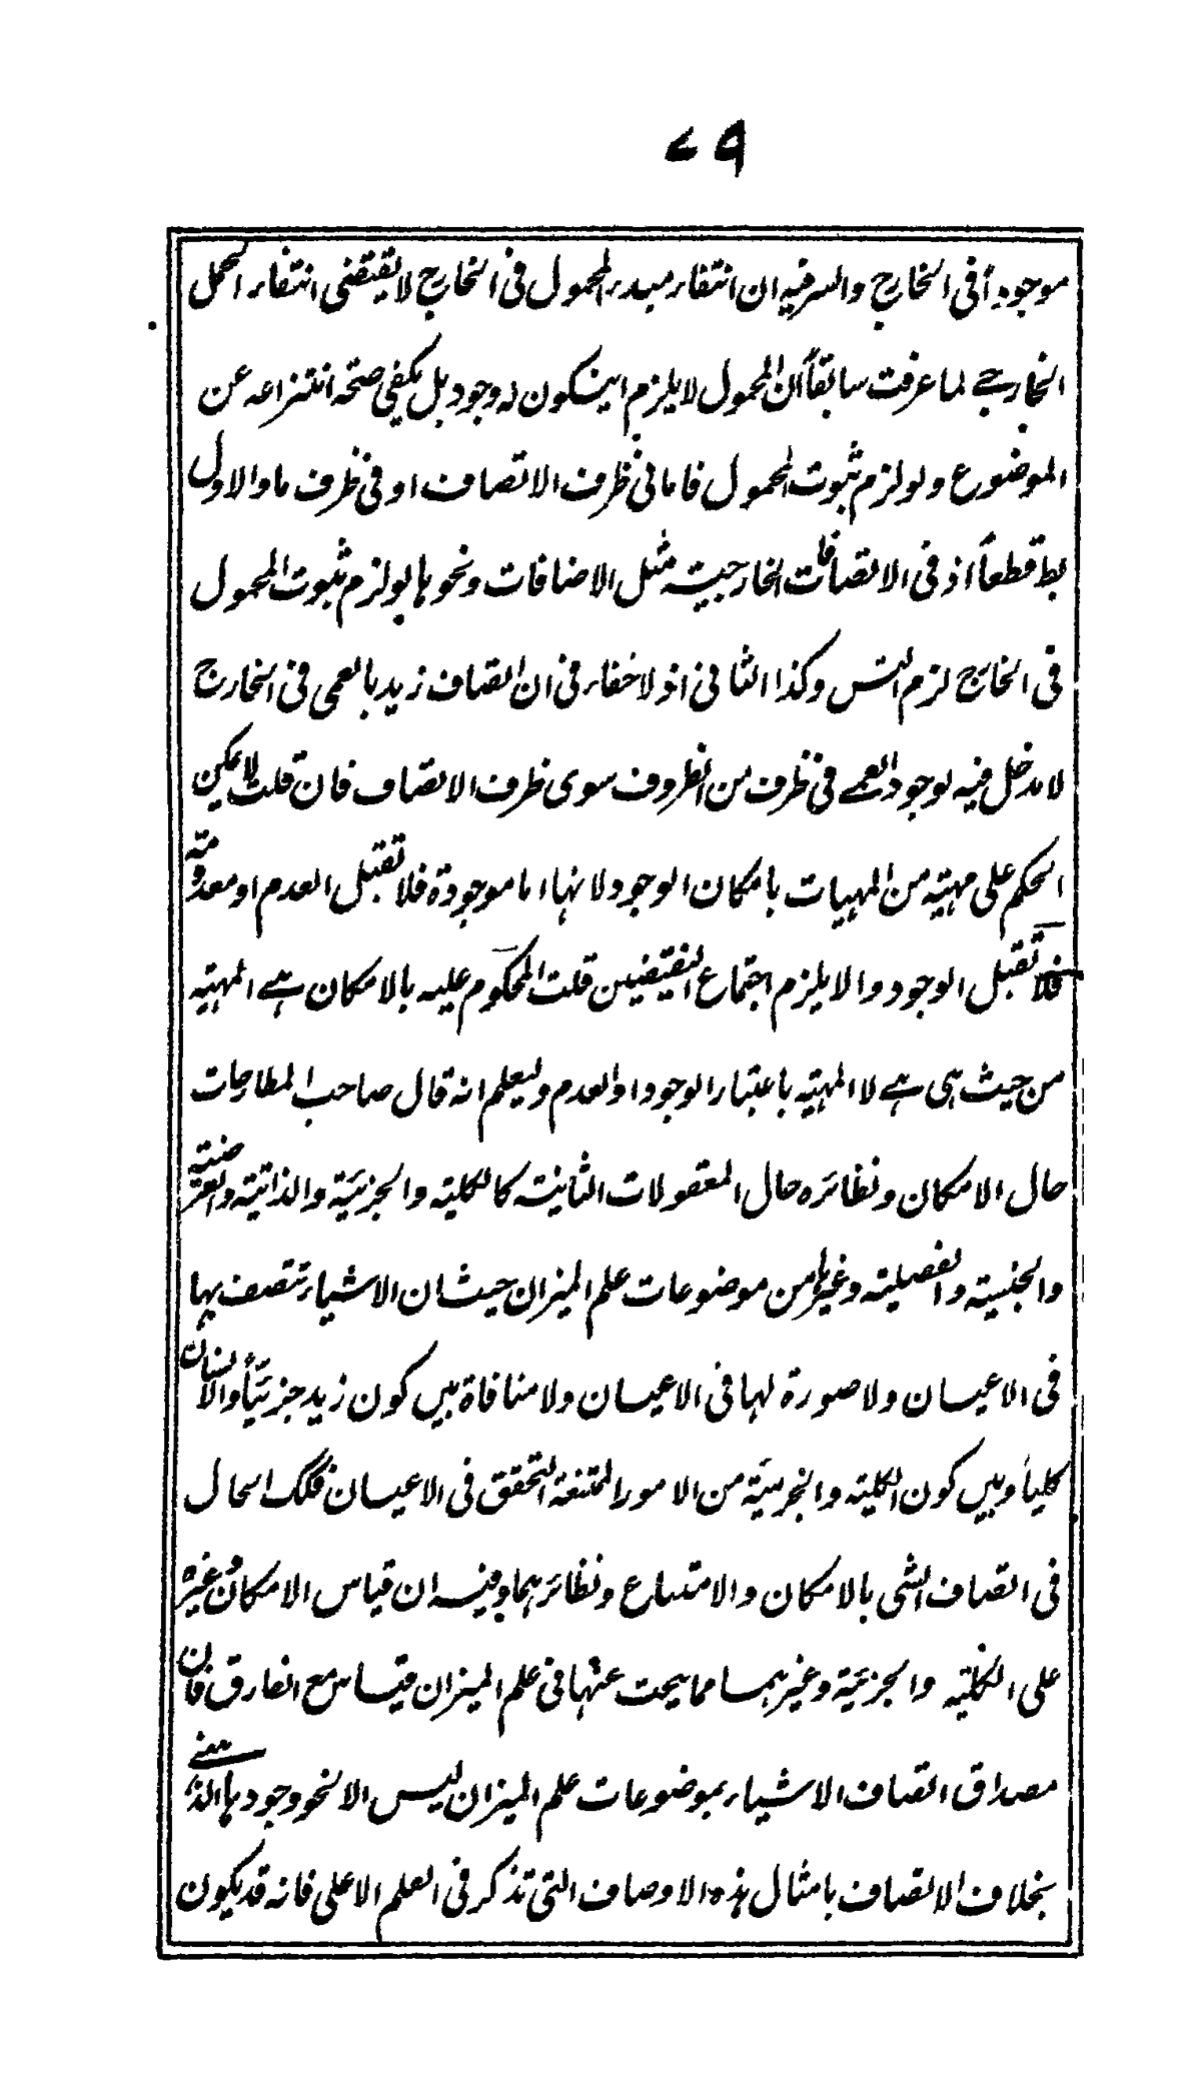 ٧٩
موجودة في الخارج والسر فيه ان انتفاء مبدء المحمول في الخارج لا يقتضي انتفاء الحمل
الخارجي لما عرفت سابقاً ان المحمول لا يلزم ان يكون له وجود بل يكفي صحة انتزاعه عن
الموضوع ولو لزم ثبوت المحمول فاما في ظرف الاتصاف او في ظرف ما والاول
بط قطعاً اذ في الاتصافات الخارجية مثل الاضافات ونحوها لو لزم ثبوت المحمول
في الخارج لزم التس وكذا الثاني اذ لا خفاء في ان اتصاف زيد بالعمى في الخارج
لا مدخل فيه لوجود العمى في ظرف من الظروف سوى ظرف الاتصاف فان قلت لا يمكن
الحكم على مهية من المهيات بامكان الوجود لانها اما موجودة فلا تقبل العدم او معدومة
فلا تقبل الوجود والا يلزم اجتماع النقيضين قلت المحكوم عليه بالامكان هي المهية
من حيث هي هي لا المهية باعتبار الوجود او العدم وليعلم انه قال صاحب المطارحات
حال الامكان ونظائره حال المعقولات الثانية كالكلية والجزئية والذاتية والعرضية
والجنسية والفصلية وغيرها من موضوعات علم الميزان حيث ان الاشياء تتصف بها
في الاعيان ولا صورة لها في الاعيان ولا منافاة بين كون زيد جزئياً والانسان
كلياً وبين كون الكلية والجزئية من الامور الممتنعة التحقق في الاعيان فكك الحال
في اتصاف الشي بالامكان والامتناع ونظائرهما وفيه ان قياس الامكان وغيره
على الكلية والجزئية وغيرهما مما يبحث عنها في علم الميزان قياس مع الفارق فان
مصداق اتصاف الاشياء بموضوعات علم الميزان ليس الا نحو وجودها الذهني
بخلاف الاتصاف بامثال هذه الاوصاف التي تذكر في العلم الاعلى فانه قد يكون